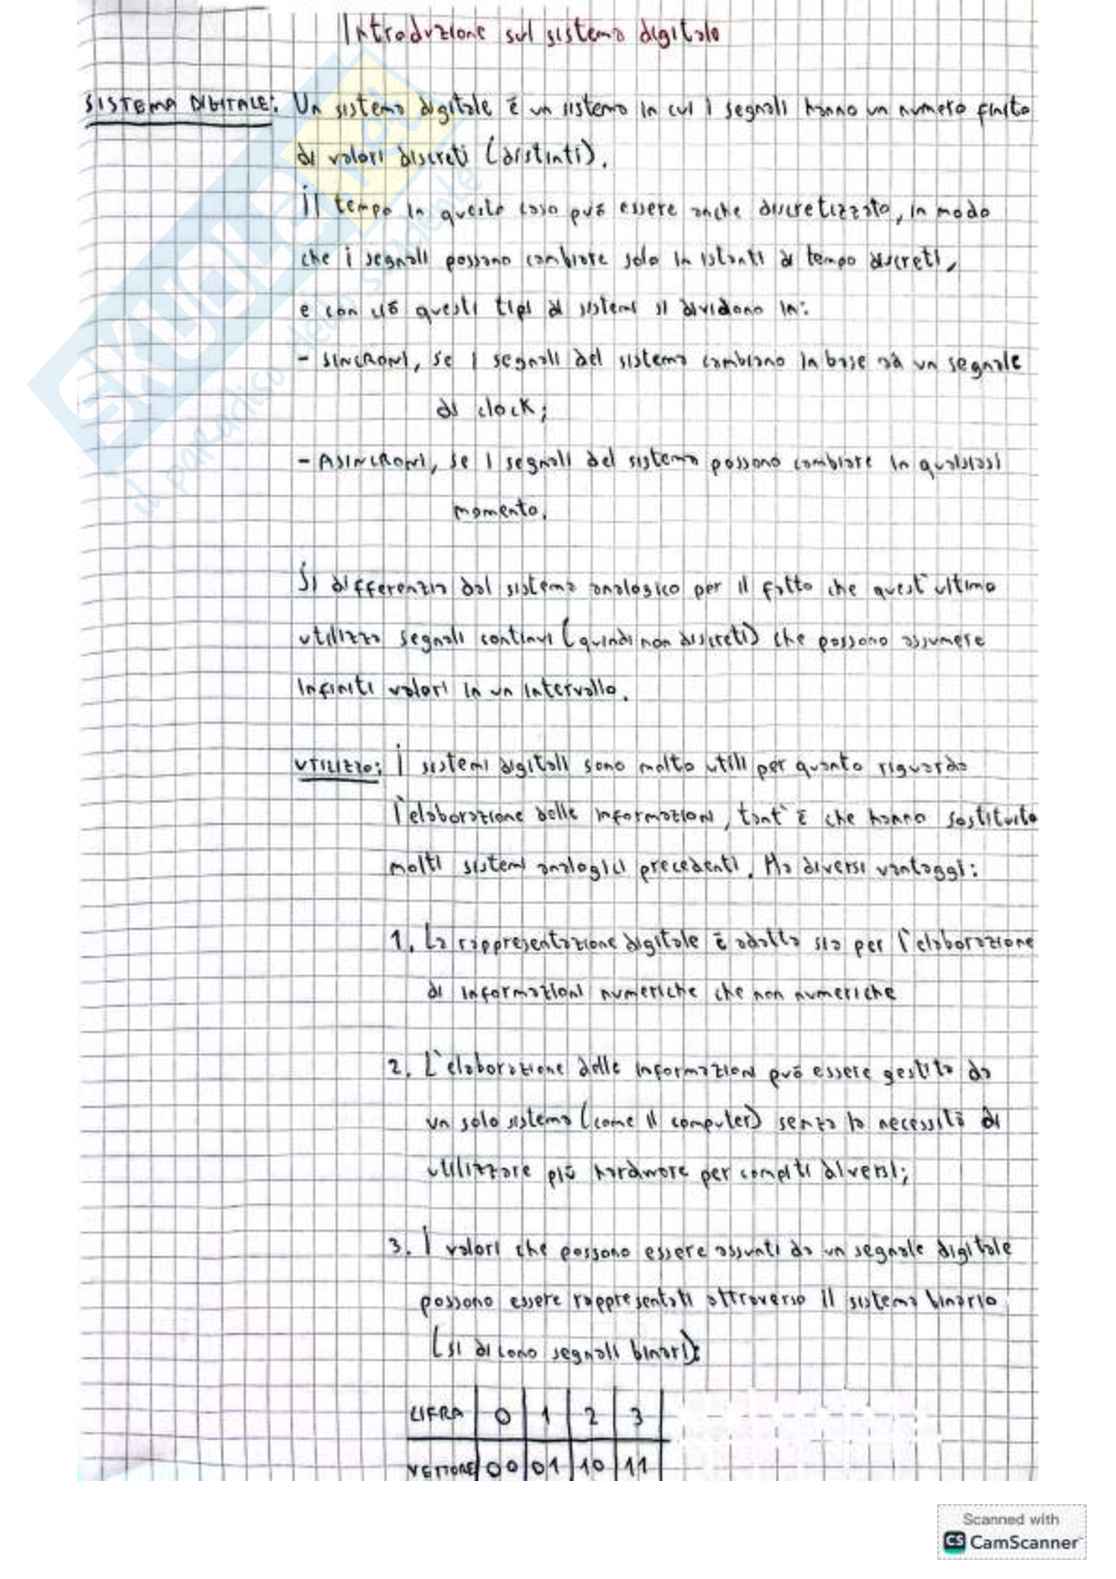 Introduzione sul sistema digitale
SISTEMA DIGITALE: Un sistema digitale è un sistema in cui i segnali hanno un numero finito
di valori discreti (distinti).
Il tempo in questo caso può essere anche discretizzato, in modo
che i segnali possano cambiare solo in istanti di tempo discreti,
e con ciò questi tipi di sistemi si dividono in:
- SINCRONI, se i segnali del sistema cambiano in base ad un segnale
di clock;
- ASINCRONI, se i segnali del sistema possono cambiare in qualsiasi
momento.
Si differenzia dal sistema analogico per il fatto che quest'ultimo
utilizza segnali continui (quindi non discreti) che possono assumere
infiniti valori in un intervallo.
UTILIZZO: I sistemi digitali sono molto utili per quanto riguarda
l'elaborazione delle informazioni, tant'è che hanno sostituito
molti sistemi analogici precedenti. Ha diversi vantaggi:
1. La rappresentazione digitale è adatta sia per l'elaborazione
di informazioni numeriche che non numeriche
2. L'elaborazione delle informazioni può essere gestita da
un solo sistema (come il computer) senza la necessità di
utilizzare più hardware per compiti diversi;
3. I valori che possono essere assunti da un segnale digitale
possono essere rappresentati attraverso il sistema binario
(si dicono segnali binari):
CIFRA 0 1 2 3
VETTORE 00 01 10 11
SKUOLA.net
il paradiso dello studente
Scanned with
CS CamScanner